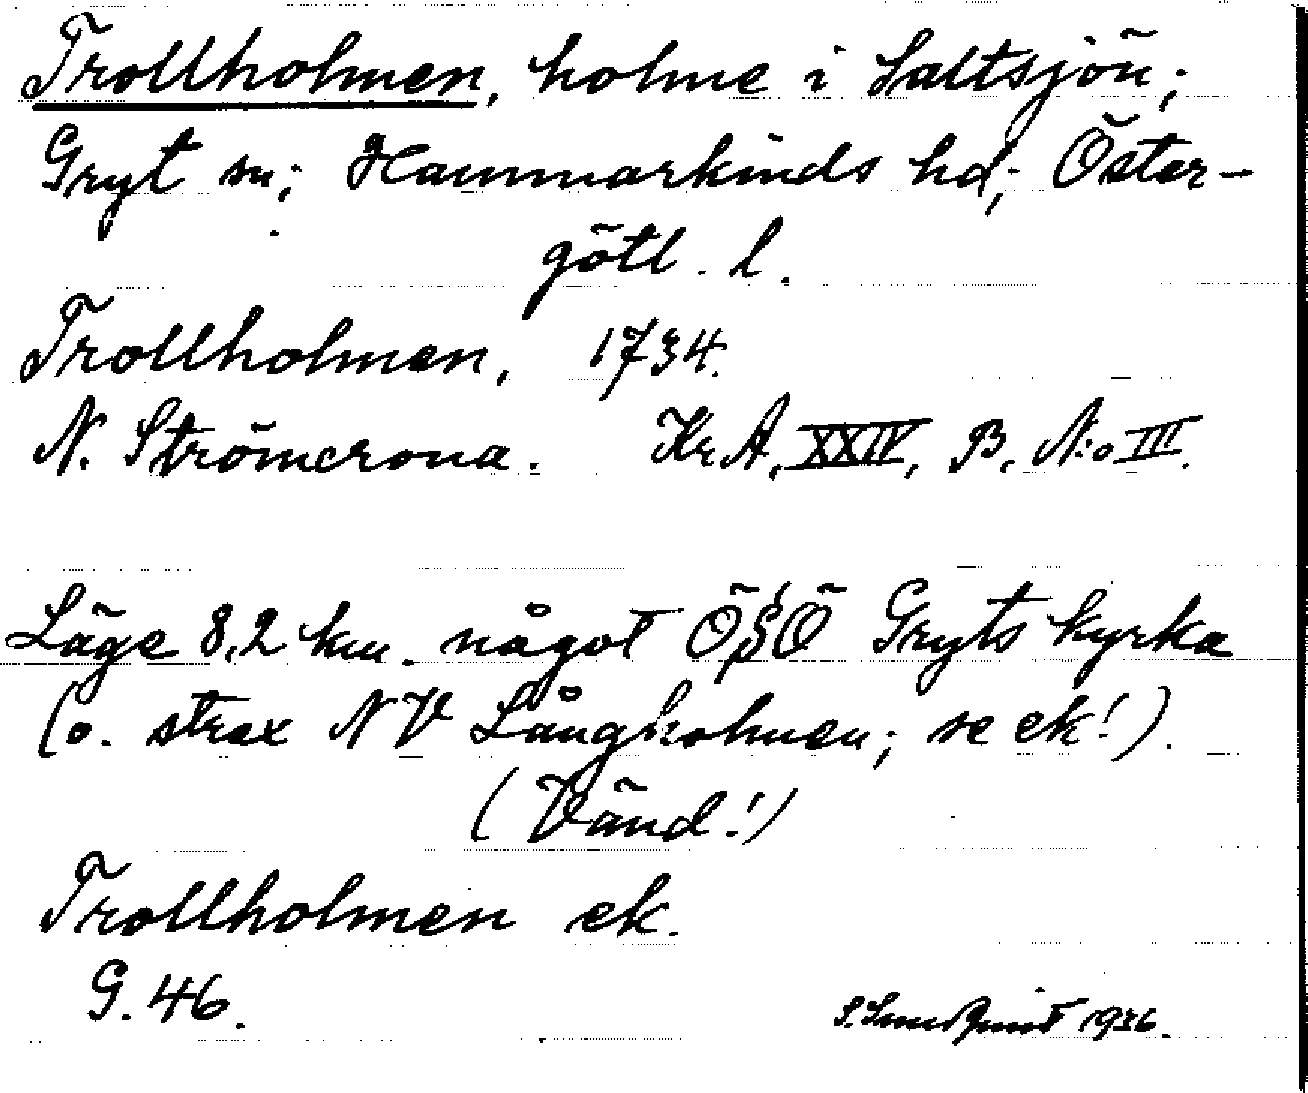 Trollholmen, holme i Saltsjön;
Gryt sn; Hammarkinds hd; Öster-
götl. l.
Trollholmen, 1734.
N. Strömcrona. Kr. A, XXIV, B, N:o III.
Läge 8,2 km. något ÖSÖ Gryts kyrka
(o. strax NV Långholmen; se ek!).
(Vänd!)
Trollholmen ek.
G. 46.
S. Sundquist